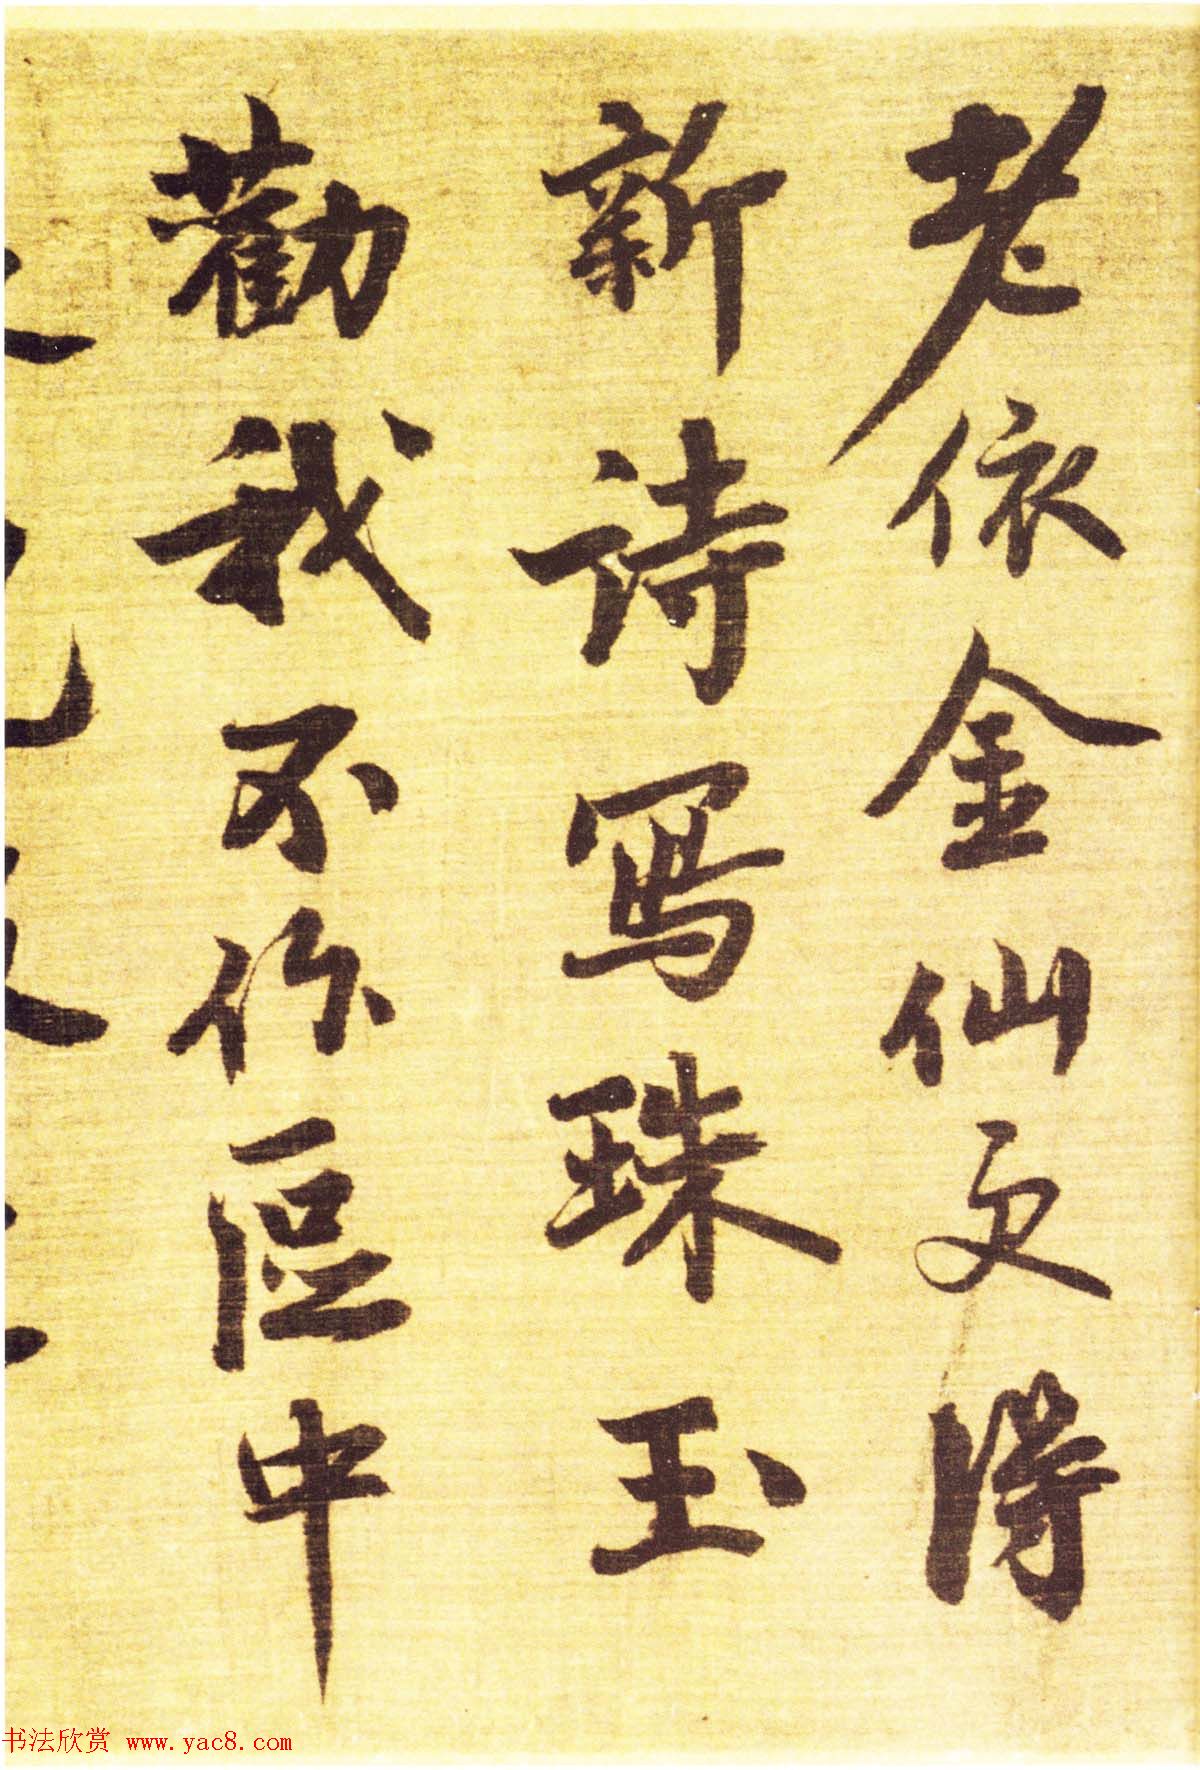 老依金仙文得
新诗写珠玉
勸我不作區中
书法欣赏 www.yac8.com